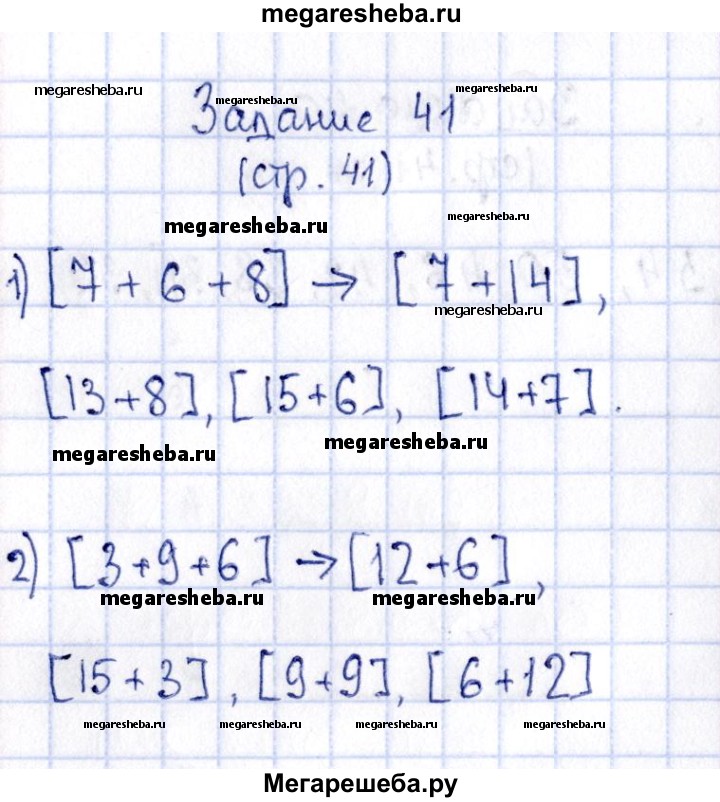 megaresheba.ru
megaresheba.ru
megaresheba.ru
megaresheba.ru
Задание 41
(стр. 41)
megaresheba.ru
megaresheba.ru
1) [7 + 6 + 8] → [7 + 14],
megaresheba.ru
[13 + 8], [15 + 6], [14 + 7].
megaresheba.ru
megaresheba.ru
2) [3 + 9 + 6] → [12 + 6],
megaresheba.ru
megaresheba.ru
[15 + 3], [9 + 9], [6 + 12]
megaresheba.ru
megaresheba.ru
megaresheba.ru
megaresheba.ru
Мегарешеба.ру